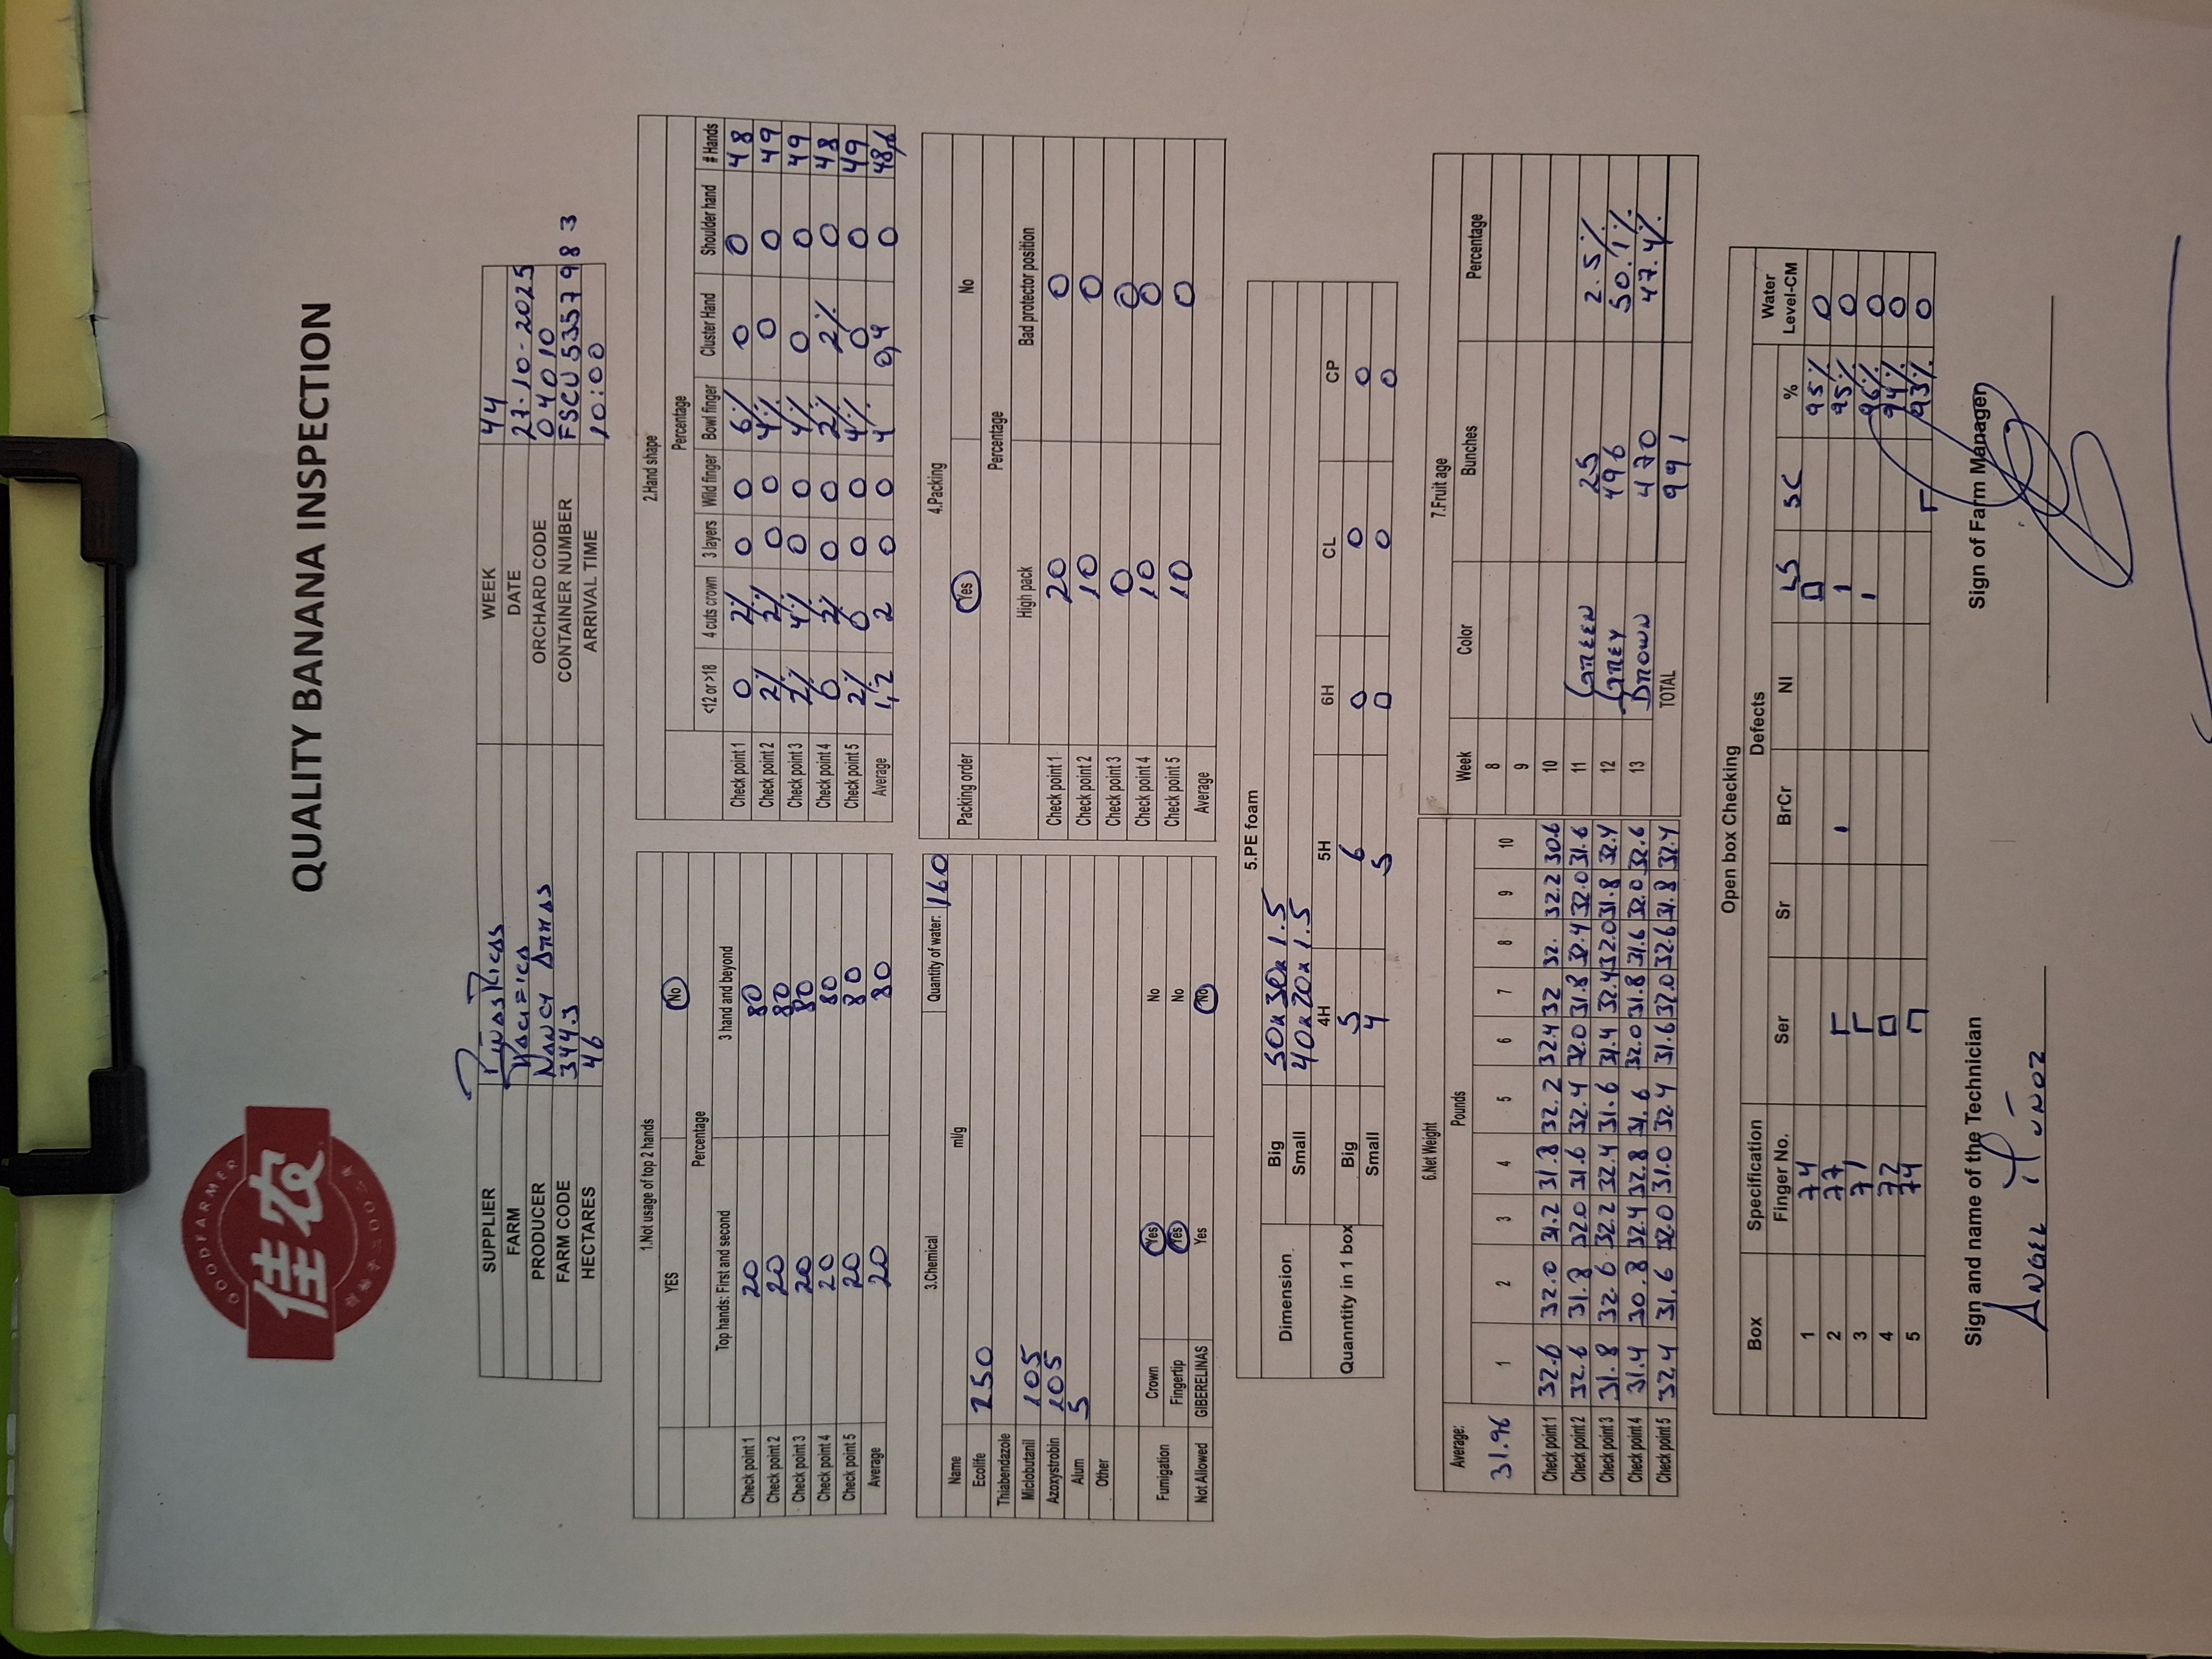 GOODFARMER
佳农
QUALITY BANANA INSPECTION
SUPPLIER PIÑAS RICAS WEEK 44
FARM PACIFICA DATE 27-10-2025
PRODUCER NANCY ARMAS ORCHARD CODE 04010
FARM CODE 3443 CONTAINER NUMBER FSCU 5357983
HECTARES 46 ARRIVAL TIME 10:00
1.Not usage of top 2 hands
YES No
Percentage
Top hands: First and second 3 hand and beyond
Check point 1 20 80
Check point 2 20 80
Check point 3 20 80
Check point 4 20 80
Check point 5 20 80
Average 20 80
2.Hand shape
Percentage
<12 or >18 4 cuts crown 3 layers Wild finger Bowl finger Cluster Hand Shoulder hand # Hands
Check point 1 0 2% 0 0 6% 0 0 48
Check point 2 2% 2% 0 0 4% 0 0 49
Check point 3 2% 4% 0 0 4% 0 0 49
Check point 4 0 2% 0 0 2% 2% 0 48
Check point 5 2% 0 0 0 4% 0 0 49
Average 1,2 2 0 0 4 0,4 0 48,6
3.Chemical Quantity of water: 160
Name ml/g
Ecolife 250
Thiabendazole
Miclobutanil 105
Azoxystrobin 105
Alum 5
Other
Fumigation Crown Yes No
Fingertip Yes No
Not Allowed GIBERELINAS Yes No
4.Packing
Packing order Yes No
Percentage
High pack Bad protector position
Check point 1 20 0
Check point 2 10 0
Check point 3 0 0
Check point 4 10 0
Check point 5 10 0
Average
5.PE foam
Dimension Big 50x30x1.5
Small 40x20x1.5
4H 5H 6H CL CP
Quanntity in 1 box Big 5 6 0 0 0
Small 4 5 0 0 0
6.Net Weight
Average: Pounds
31.96 1 2 3 4 5 6 7 8 9 10
Check point 1 32.6 32.0 31.2 31.8 32.2 32.4 32 32. 32.2 30.6
Check point 2 32.6 31.8 32.0 31.6 32.4 32.0 31.8 32.4 32.0 31.6
Check point 3 31.8 32.6 32.2 32.4 31.6 31.4 32.4 32.0 31.8 32.4
Check point 4 31.4 30.8 32.4 32.8 31.6 32.0 31.8 31.6 32.0 32.6
Check point 5 32.4 31.6 32.0 31.0 32.4 31.6 32.0 32.6 31.8 32.4
7.Fruit age
Week Color Bunches Percentage
8
9
10
11 GREEN 25 2.5%
12 GREY 496 50.1%
13 BROWN 470 47.4%
TOTAL 991
Open box Checking
Box Specification Defects Water
Finger No. Ser Sr BrCr NI LS SC % Level-CM
1 74 95% 0
2 77 95% 0
3 71 96% 0
4 72 94% 0
5 74 93% 0
Sign and name of the Technician Sign of Farm Manager
ANGEL MUÑOZ